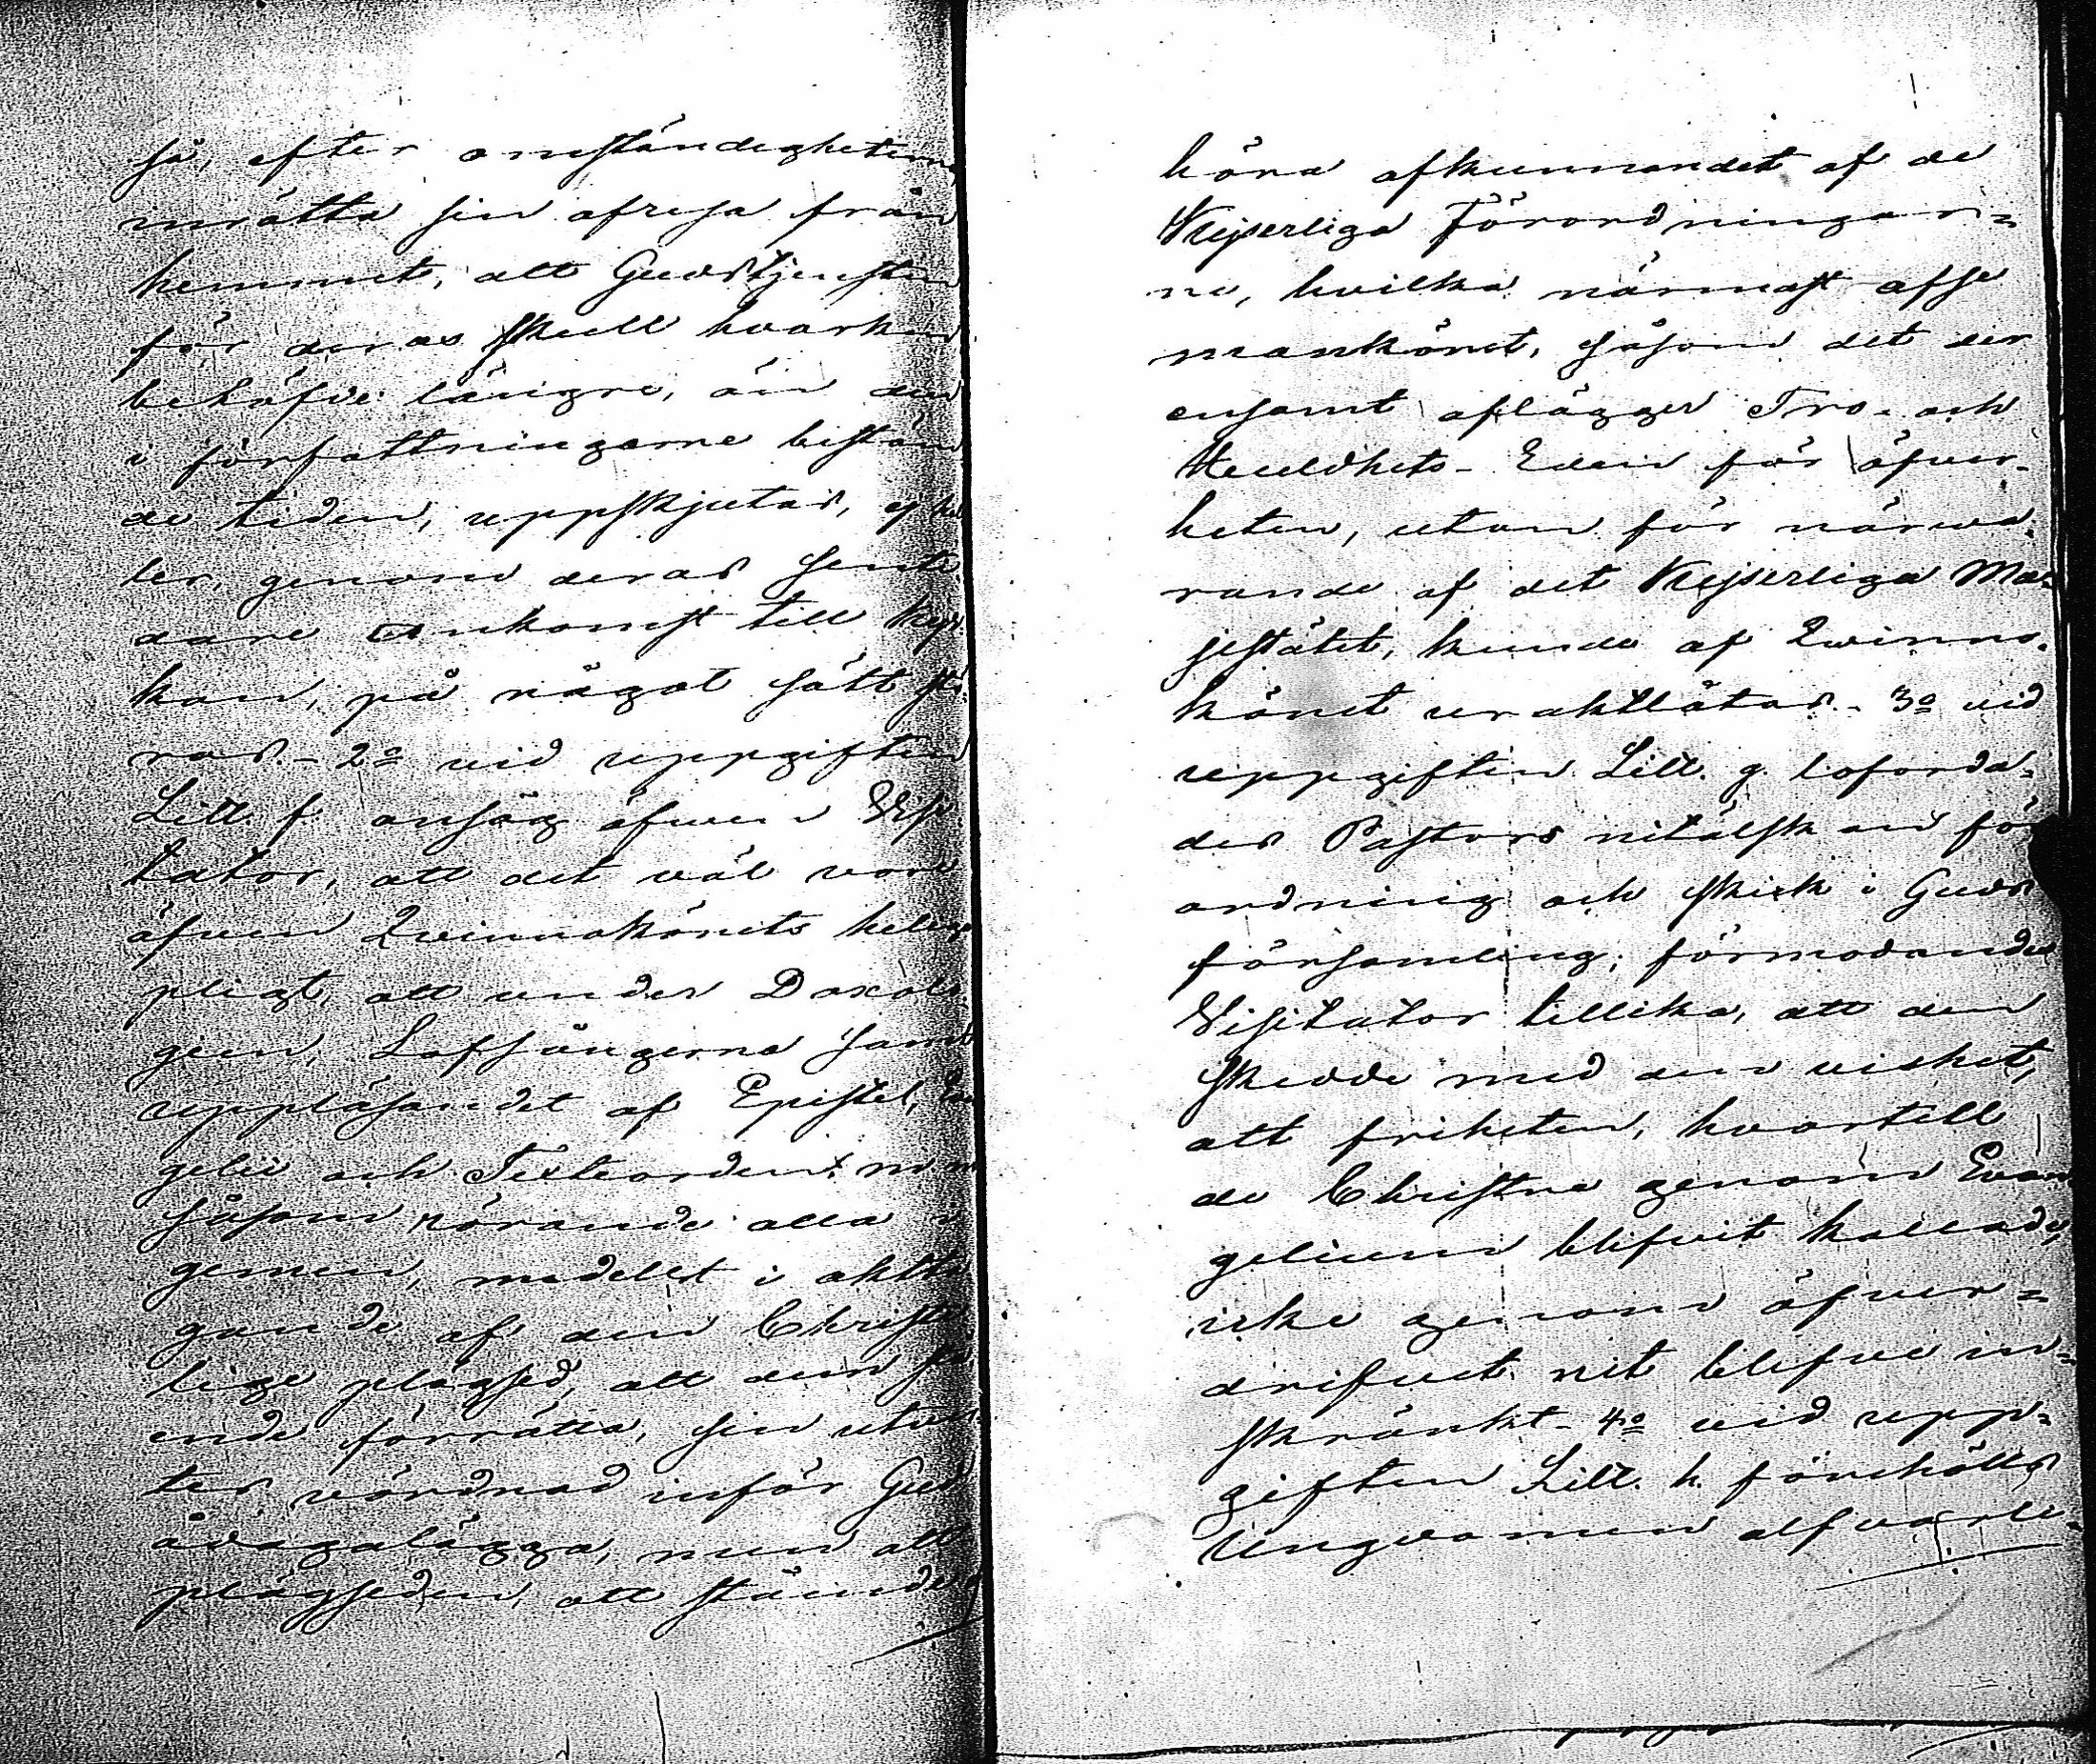 så, efter omständigheterna,
inrätta sin afresa från
hemmet, att Gudstjensten
för deras skull hvarken
behöfde längre, än den
i författningarne bestäm
de tiden, uppskjutas, ej hel
ler, genom deras senta
dare ankomst till kyr
kan, på något sätt stö
ras. - 2o vid uppgiften
Litt. f. ansåg äfven Visi
tator, att det väl vore
äfven Qvinnokönets helega
pligt, att under Doxolo
gien, Lofsångerna samt
uppläsandet af Epistel, Evan
gelii och Texteorden m m
såsom rörande alla i
gemen, medelst i aktta
gande af den Christe
lige plägsed, att den stå
ende förrätta, sin utvär
tes vördnad inför Gud
ådagalägga, men att
plägseden, att stående
höra afkunnandet af de
Kejserliga Förordningar=
ne, hvilka närmast afse
mankönet, såsom det der
ensamt aflägger Tro- och
Huldhets- Eden för öfver-
heten, utom för närva-
rande af det Kejserliga Ma=
jestätet, kunde af Qvinno-
könet uraktlåtas. - 3o vid
uppgiften Litt. g. loforda=
des Pastors nitälskan för
ordning och skick i Guds
församling; förmodandes
Visitator tillika, att den
skedde med den vishet,
att friheten, hvartill
de Christna genom Evan
gelium blifvit kallade,
icke genom öfver=
drifvet nit blifve in=
skränkt - 4o vid upp=
giften Litt. h. förehölls
Ungdomen alfvarli-